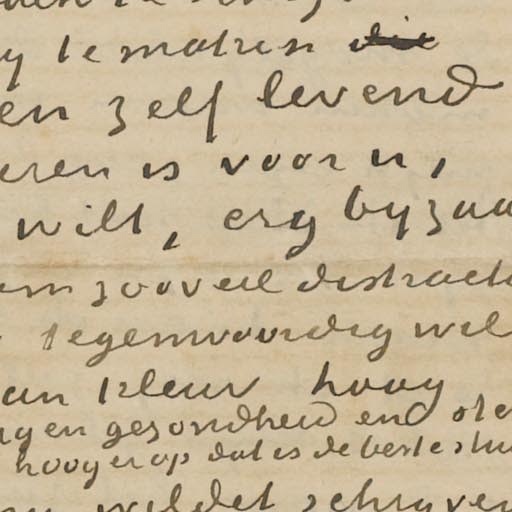 y te maken die
en zelf levend
eren is voor u,
wilt, erg byzaa
em zooveel distracti
tegenwoordig wel
an kleur hoog
gen gezondheid en
hooger op dat is de beste
wildet schryven